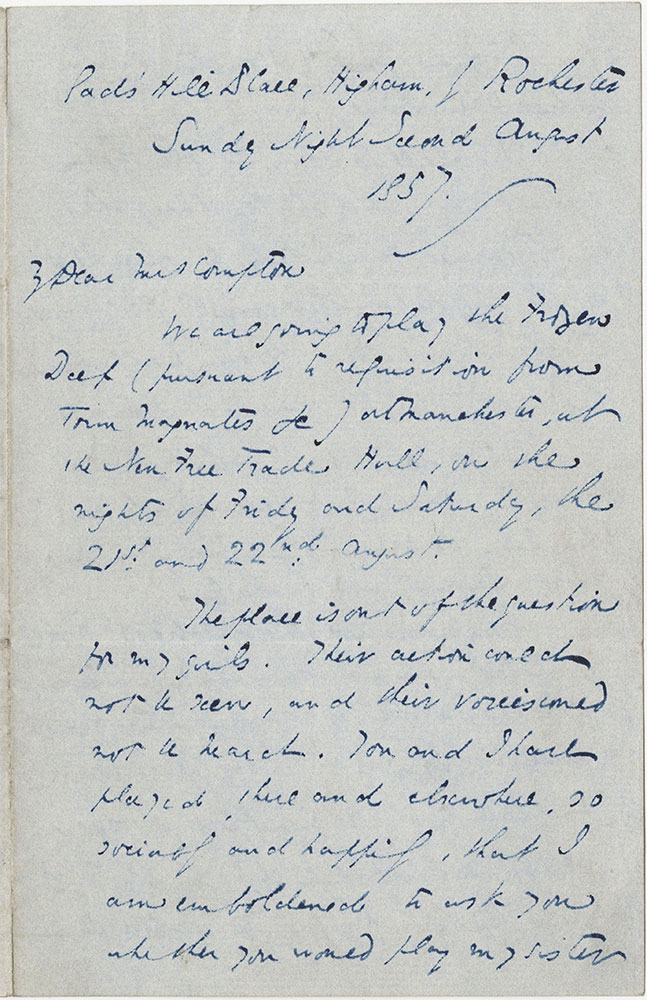 Gad's Hill Place, Higham, by Rochester
Sunday Night Second August
1857.
My Dear Mrs Compton
We are going to play the Frozen
Deep (pursuant to requisition from
Town Magnates &c) at Manchester, at
the New Free Trade Hall, on the
nights of Friday and Saturday, the
21st. and 22nd. August.
The place is out of the question
for my girls. Their action could
not be seen, and their voices could
not be heard. You and I have
played, there and elsewhere, so
sociably and happily, that I
am emboldened to ask you
whether you would play my sister